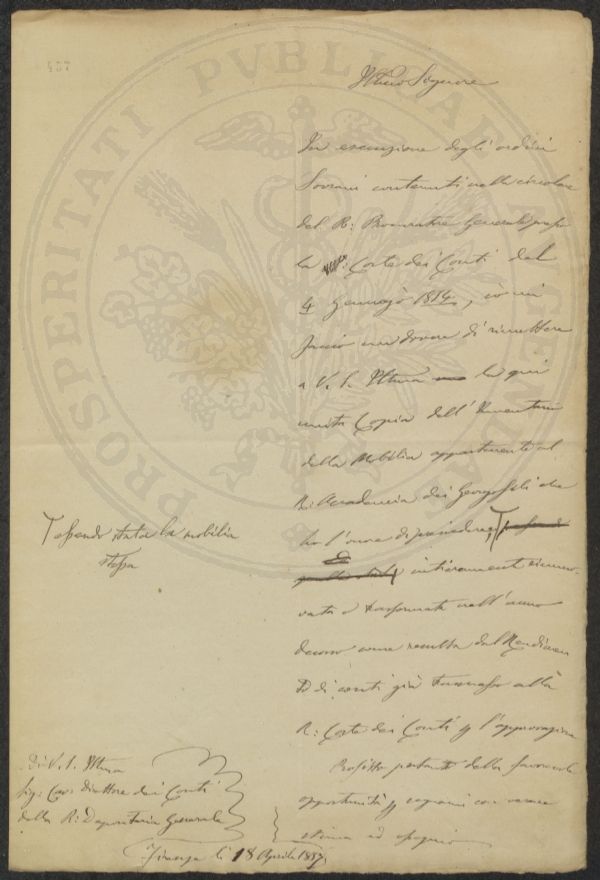 457
Illmo Signore
In esecuzione degli ordini
Sovrani contenuti nella circolare
del R: Procuratore Generale presso
la R: Corte dei Conti del
4 Gennajo, io mi
faccio un dovere di rimettere
a V. S. Illma la qui
unita Copia dell'Inventario
della Mobilia appartenente al
R: Accademia dei Georgofili che
ho l'onore di presiedere,
essendo stata la mobilia
stessa
intieramente rinno-
vata e trasformata nell'anno
decorso come resulta dal Rendicon
to di conti già trasmesso alla
R: Corte dei Conti p l'approvazione
Profitto pertanto della favorevole
opportunità p segnarmi con vera
stima ed ossequio
Di V. S. Illma
Sig: Cav: Direttore dei Conti
della R: Depositeria Generale
Firenze li 18 Aprile 1857
PROSPERITATI PVBLICAE AVGENDAE